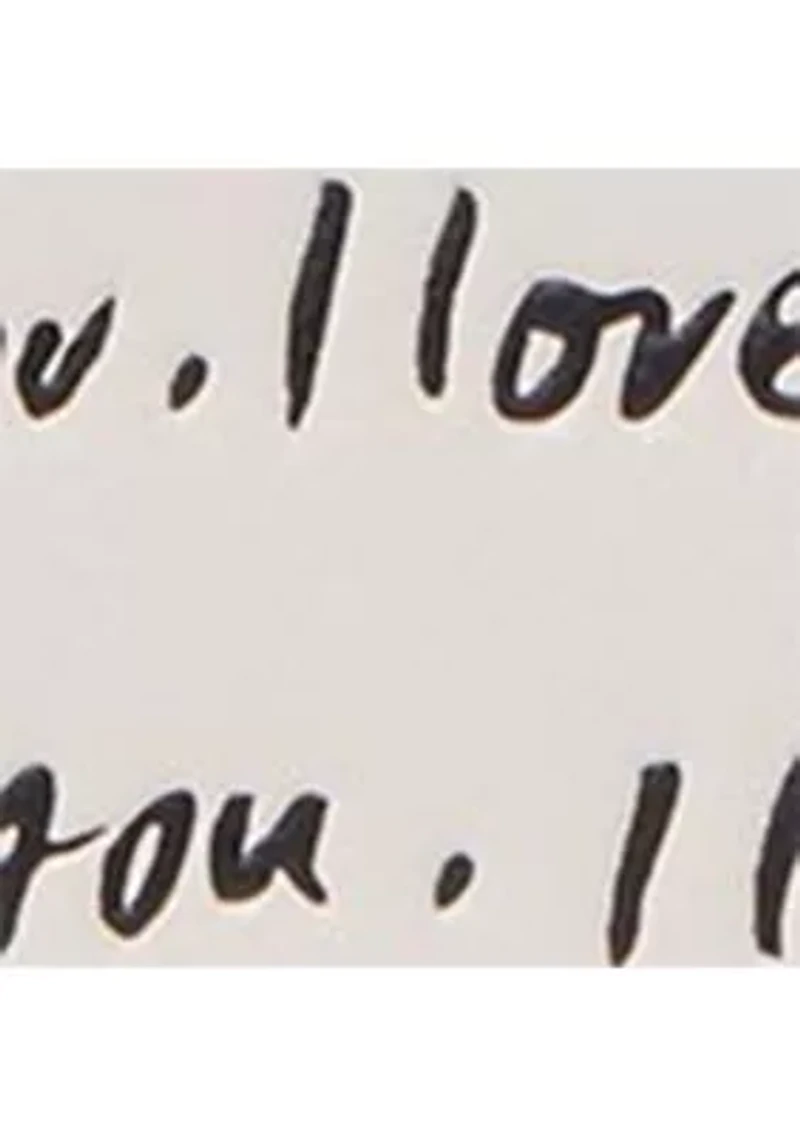 . I love
you . I